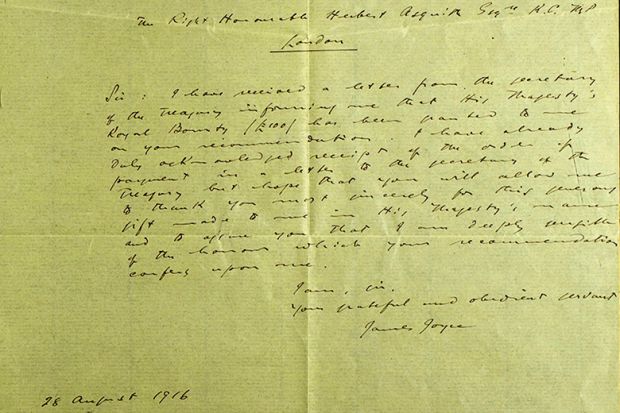 The Right Honourable Herbert Asquith Esqre K.C. M.P
London
Sir: I have received a letter from the secretary
of the Treasury informing me that His Majesty's
Royal Bounty (£100) has been granted to me
on your recommendation. I have already
duly acknowledged receipt of the order of
payment in a letter to the secretary of the
Treasury but hope that you will allow me
to thank you most sincerely for this generous
gift made to me in His Majesty's name
and to assure you that I am deeply sensible
of the honour which your recommendation
confers upon me.
I am, sir,
your grateful and obedient servant
James Joyce
28 August 1916